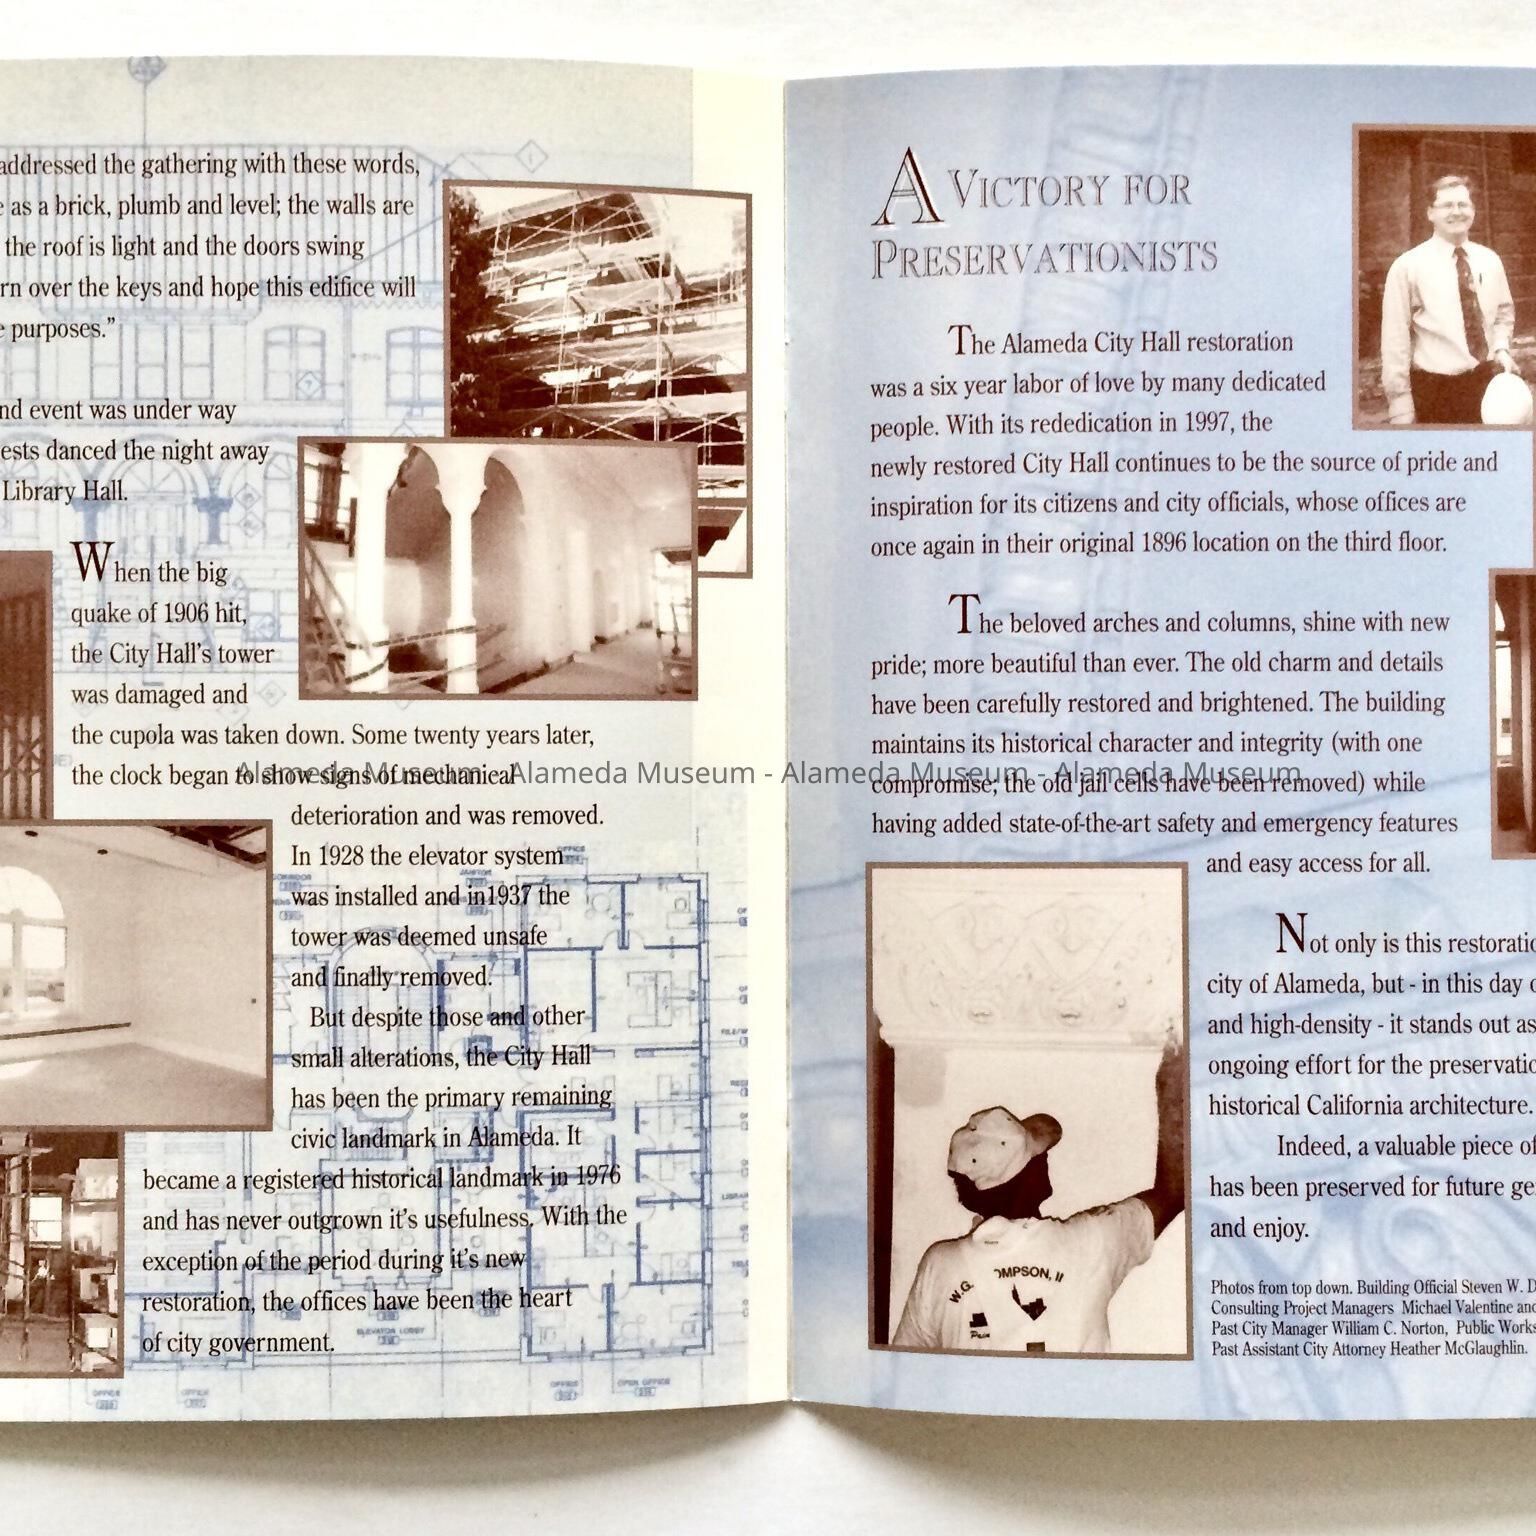 addressed the gathering with these words,
as a brick, plumb and level; the walls are
the roof is light and the doors swing
over the keys and hope this edifice will
purposes.”
event was under way
danced the night away
Library Hall.
When the big
quake of 1906 hit,
the City Hall's tower
was damaged and
the cupola was taken down. Some twenty years later,
the clock began to show signs of mechanical
deterioration and was removed.
In 1928 the elevator system
was installed and in1937 the
tower was deemed unsafe
and finally removed.
But despite those and other
small alterations, the City Hall
has been the primary remaining
civic landmark in Alameda. It
became a registered historical landmark in 1976
and has never outgrown it's usefulness. With the
exception of the period during it's new
restoration, the offices have been the heart
of city government.
ELEVATOR LOBBY
OFFICE
OFFICE
OFFICE
OPEN OFFICE
A VICTORY FOR
PRESERVATIONISTS
The Alameda City Hall restoration
was a six year labor of love by many dedicated
people. With its rededication in 1997, the
newly restored City Hall continues to be the source of pride and
inspiration for its citizens and city officials, whose offices are
once again in their original 1896 location on the third floor.
The beloved arches and columns, shine with new
pride; more beautiful than ever. The old charm and details
have been carefully restored and brightened. The building
maintains its historical character and integrity (with one
compromise; the old jail cells have been removed) while
having added state-of-the-art safety and emergency features
and easy access for all.
Not only is this
city of Alameda, but - in this day
and high-density - it stands out as
ongoing effort for the
historical California architecture.
Indeed, a valuable piece
has been preserved for future
and enjoy.
W.G. OMPSON, II
Photos from top down. Building Official Steven W.
Consulting Project Managers Michael Valentine
Past City Manager William C. Norton, Public Works
Past Assistant City Attorney Heather McGlaughlin.
Alameda Museum - Alameda Museum - Alameda Museum - Alameda Museum